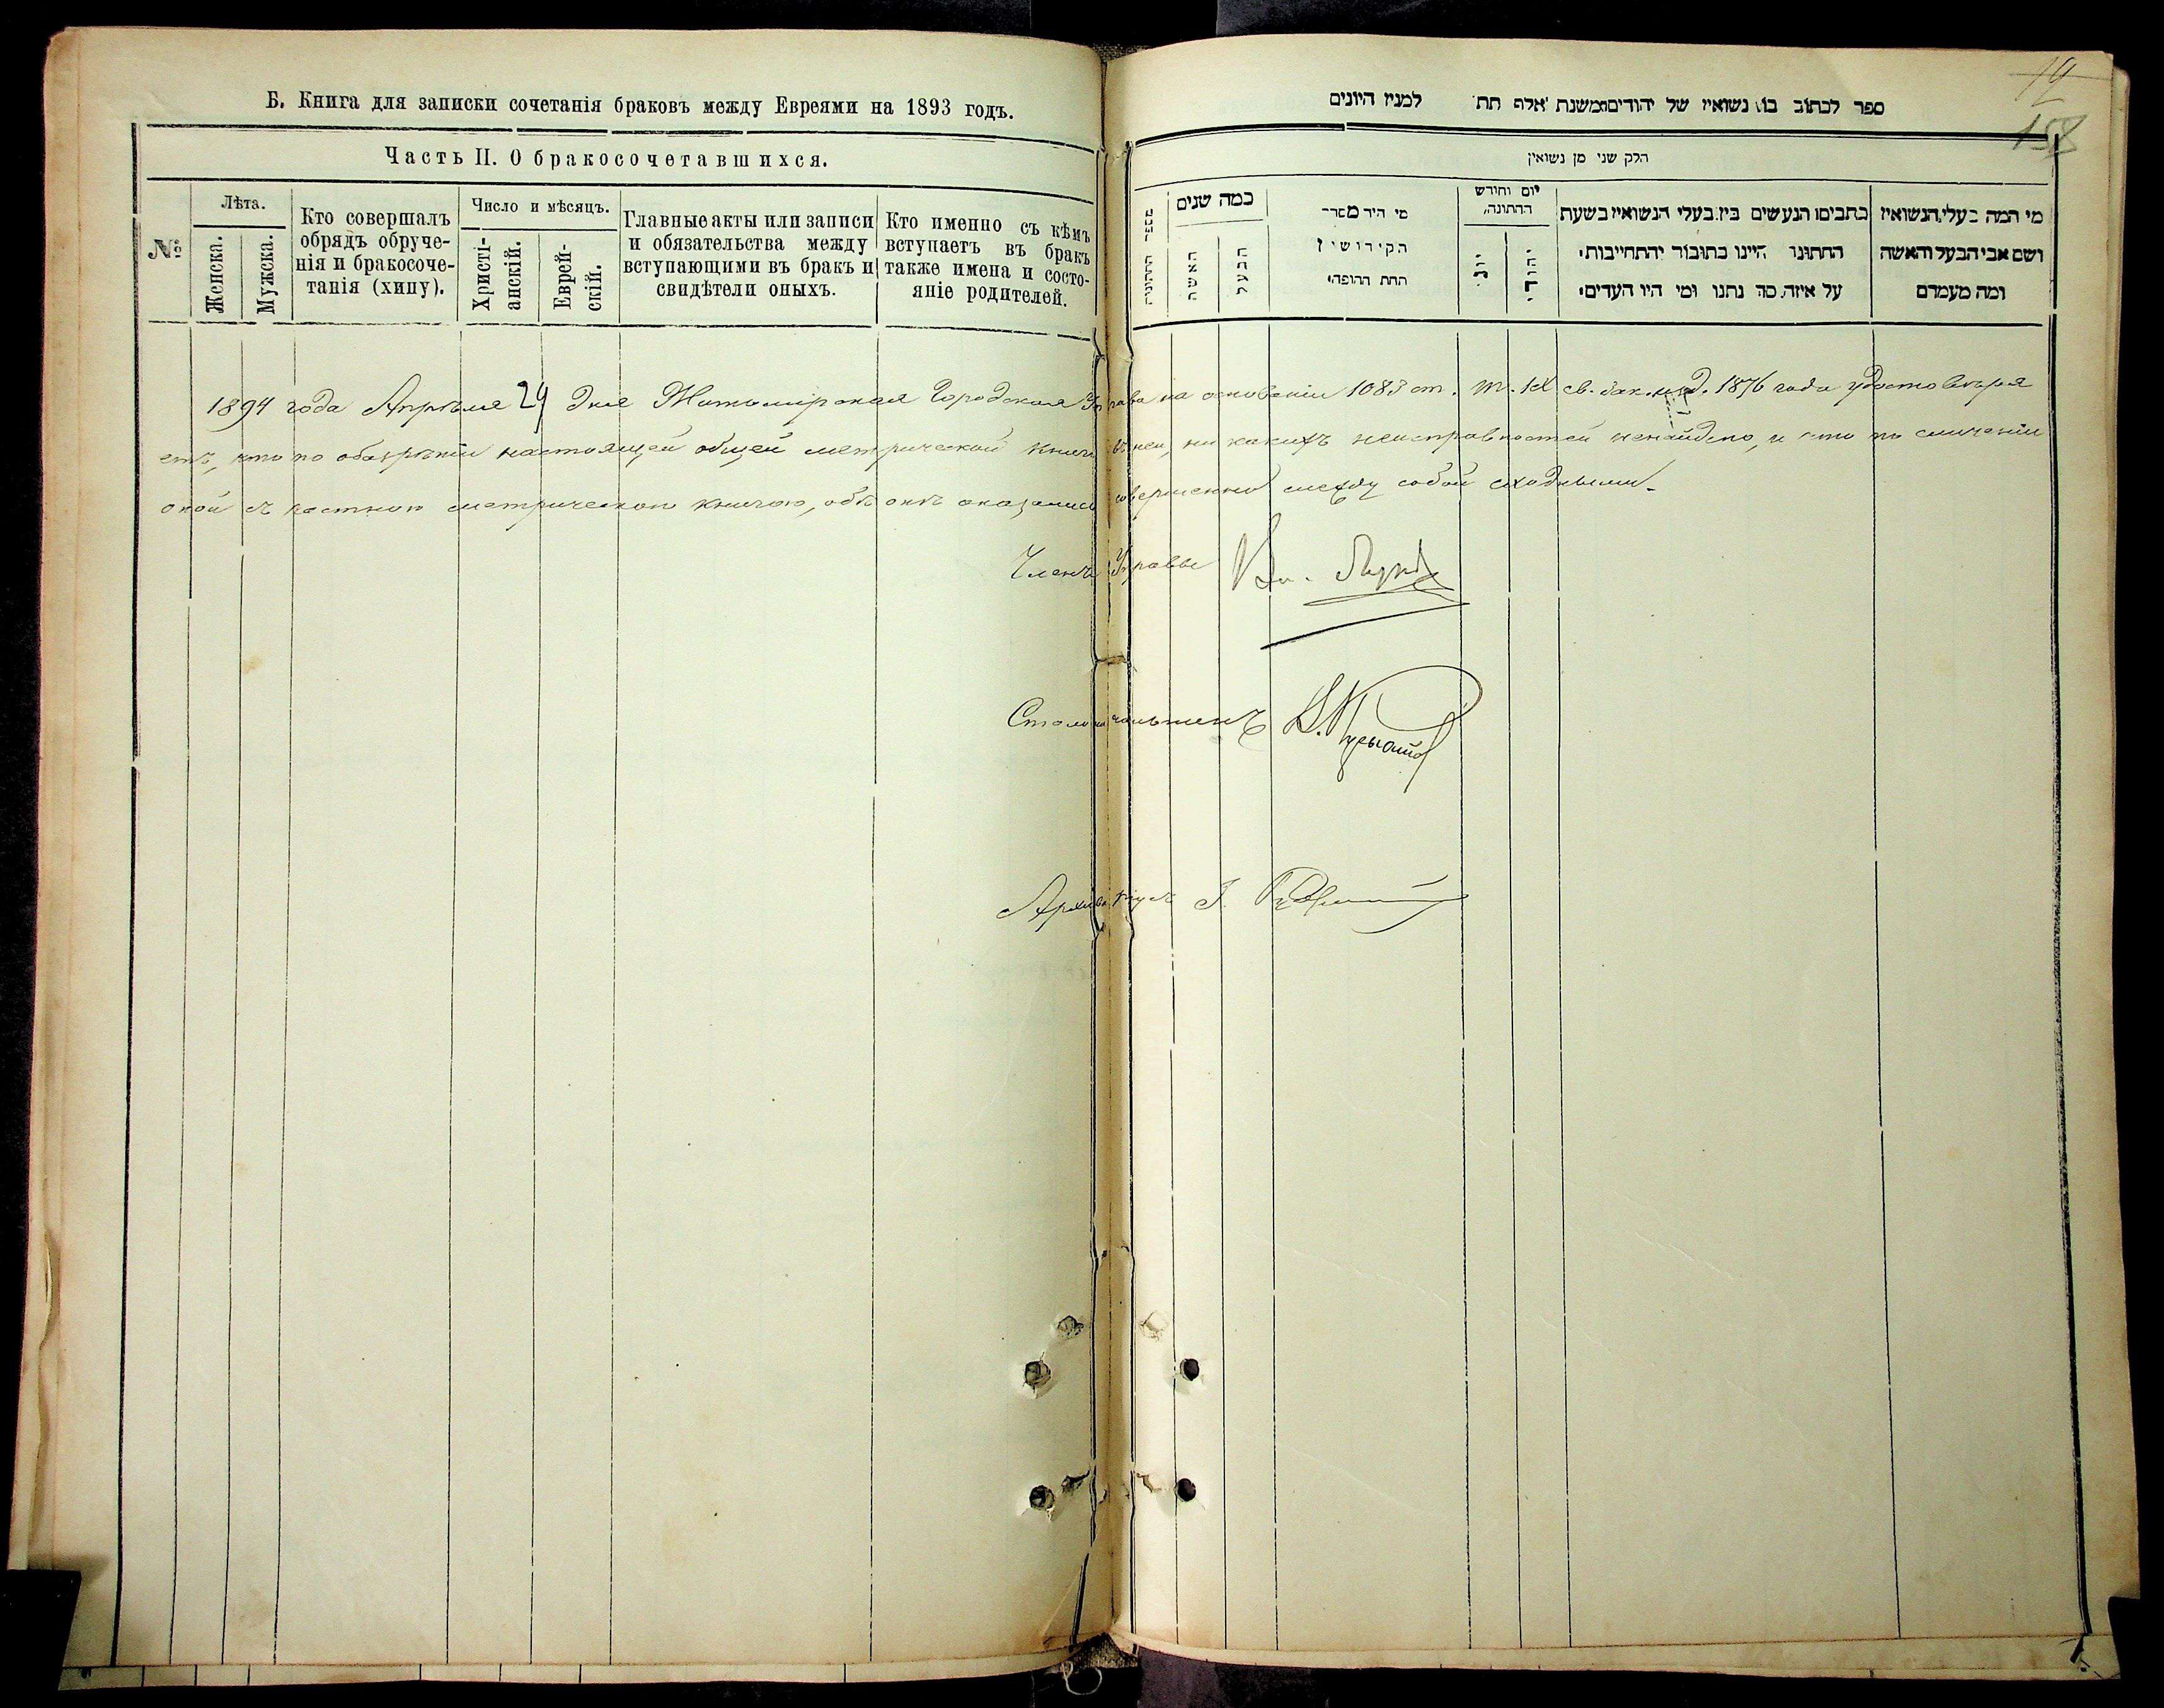 Б. Книга для записки сочетанія браковъ между Евреями на 1893 годъ.
Часть II. О бракосочетавшихся.
№
Лѣта.
Женска.
Мужска.
Кто совершалъ
обрядъ обруче-
нія и бракосоче-
танія (хипу).
Число и мѣсяцъ.
Христі-
анскій.
Еврей-
скій.
Главные акты или записи
и обязательства между
вступающими въ бракъ и
свидѣтели оныхъ.
Кто именно съ кѣмъ
вступаетъ въ бракъ
также имена и состо-
яніе родителей.
ספר לכתוב בו נשואין של יהודים משנת אלף תת למנין היונים
חלק שני מן נשואין
מי המה בעלי הנשואין
ושם אבי הבעל והאשה
ומה מעמדם
כתבים הנעשים בין בעלי הנשואין בשעת
החתונו היינו כתובור והתחייבות
על איזה סך נתנו ומי היו העדים
יום וחודש
החתונה
יהודי
יוני
מי היה מסדר
הקידושין
תחת החופה
כמה שנים
הבעל
האשה
מספר החתונות
158
1894 года Апрѣля 29 дня Житомірская Городская Управа на основаніи 1083 ст. т. IX св. зак. изд. 1876 года удостовѣря
етъ, что по обозрѣніи настоящей общей метрической книги въ ней, ни какихъ неисправностей ненайдено, и что по сличеніи
оной съ частною метрическою книгою, обѣ онѣ оказались совершенно между собой сходными.
Членъ Управы
Столоначальникъ
Архиваріусъ